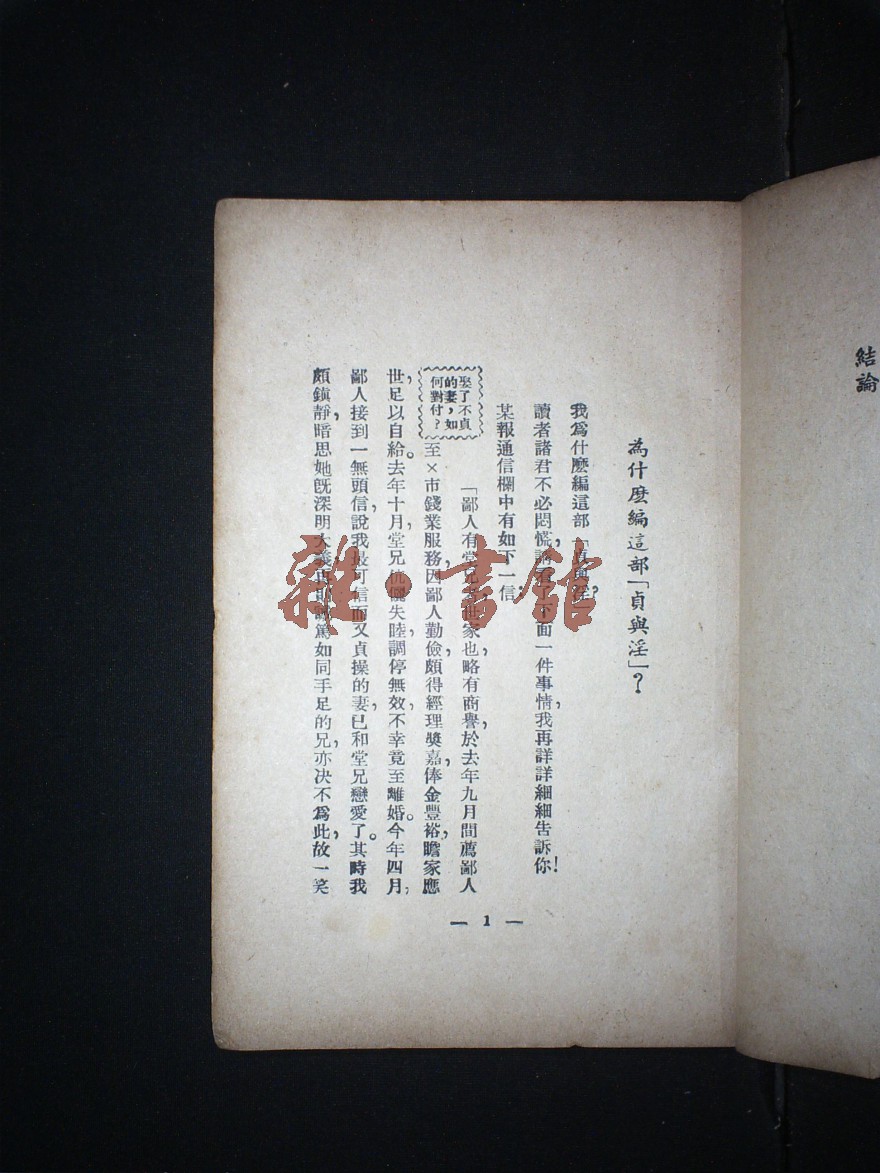 結論
為什麽編這部「貞與淫」？
我爲什麽編這部「貞與淫」？
讀者諸君不必悶慌，請看了下面一件事情，我再詳詳細細告訴你！
某報通信欄中有如下一信：
娶了不貞
的妻，如
何對付？
「鄙人有堂兄，世家也，略有商譽，於去年九月間薦鄙人
至×市錢業服務，因鄙人勤儉，頗得經理獎嘉，俸金豐裕，贍家應
世，足以自給。去年十月，堂兄伉儷失睦，調停無效，不幸竟至離婚。今年四月，
鄙人接到一無頭信，說我最可信而又貞操的妻，已和堂兄戀愛了。其時我
頗鎮靜，暗思她旣深明大義，篤如同手足的兄，亦决不爲此，故一笑
— 1 —
雜·書館